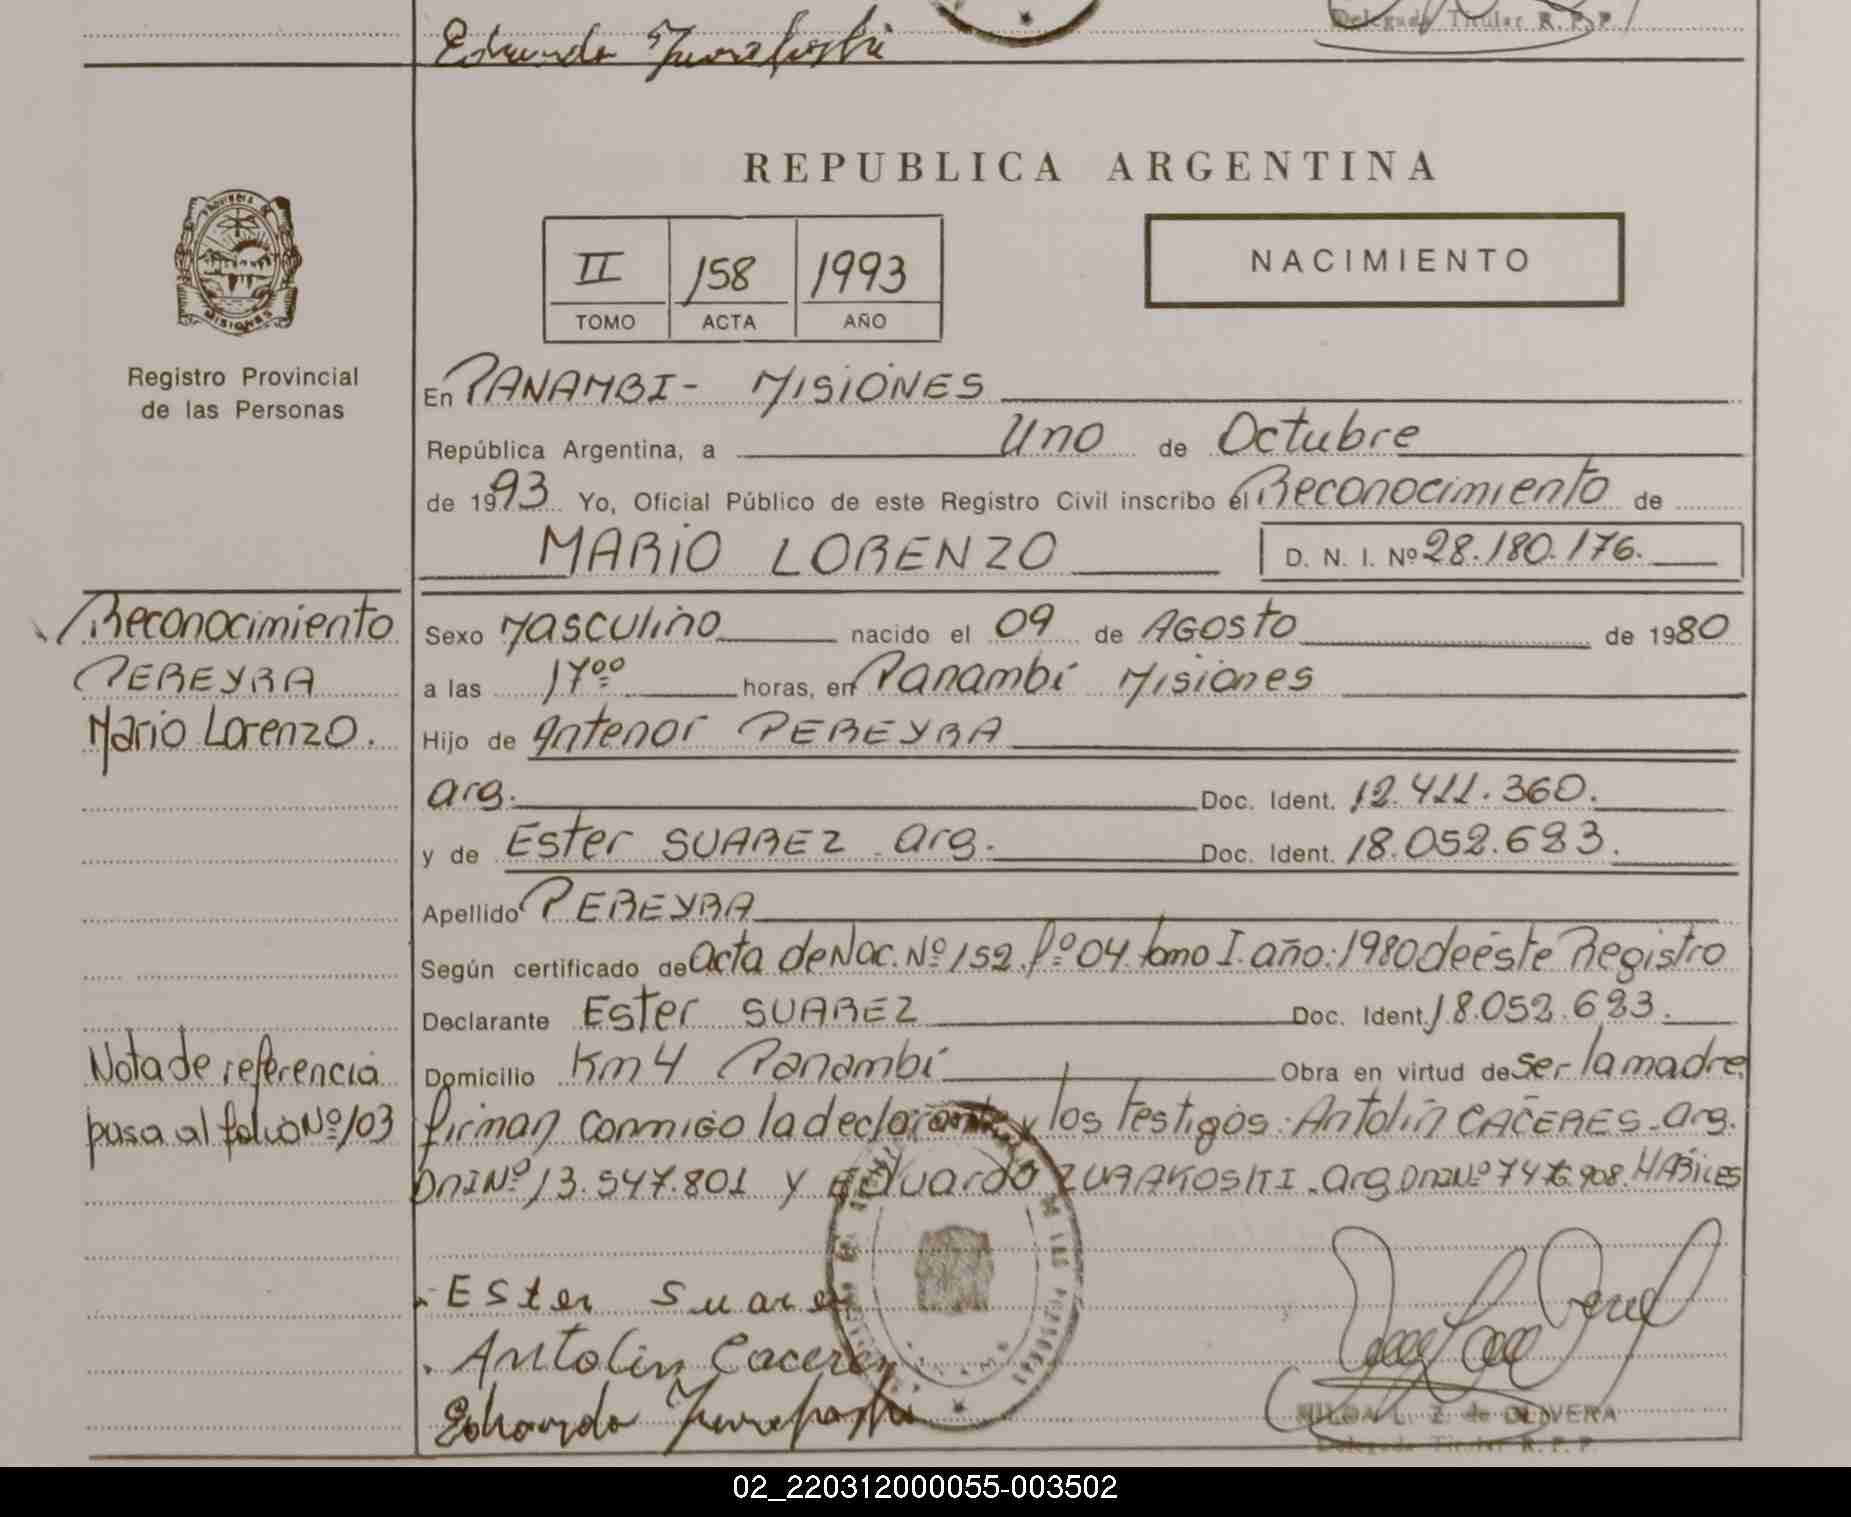 Delegada Titular R.P.P.
Eduardo Zurakoski
REPUBLICA ARGENTINA
PROVINCIA DE
MISIONES
II 158 1993
TOMO ACTA AÑO
NACIMIENTO
Registro Provincial
de las Personas
En PANAMBI- MISIONES
República Argentina, a Uno de Octubre
de 1993 Yo, Oficial Público de este Registro Civil inscribo el Reconocimiento de
MARIO LORENZO D. N. I. Nº 28.180.176.
Reconocimiento
PEREYRA
Mario Lorenzo.
Sexo Masculino nacido el 09 de AGOSTO de 1980
a las 17ºº horas, en Panambí Misiones
Hijo de Antenor PEREYRA
arg. Doc. Ident. 12.411.360.
y de Ester SUAREZ arg. Doc. Ident. 18.052.623.
Apellido PEREYRA
Según certificado de acta de Nac. Nº 152. fº 04. tomo I. año: 1980 de éste Registro
Declarante Ester SUAREZ Doc. Ident. 18.052.623.
Domicilio Km 4 Panambí Obra en virtud de ser la madre
Nota de referencia
pasa al folio Nº 103
firman conmigo la declarante y los testigos: Antolín CACERES. arg.
DNI Nº 13.547.801 y Eduardo ZURAKOSKI. arg DNI Nº 7476.908. HABILES
Ester Suarez
Antolin Caceres
Eduardo Zurakoski
HILDA L. Z. de OLIVERA
Delegada Titular R.P.P.
02_220312000055-003502